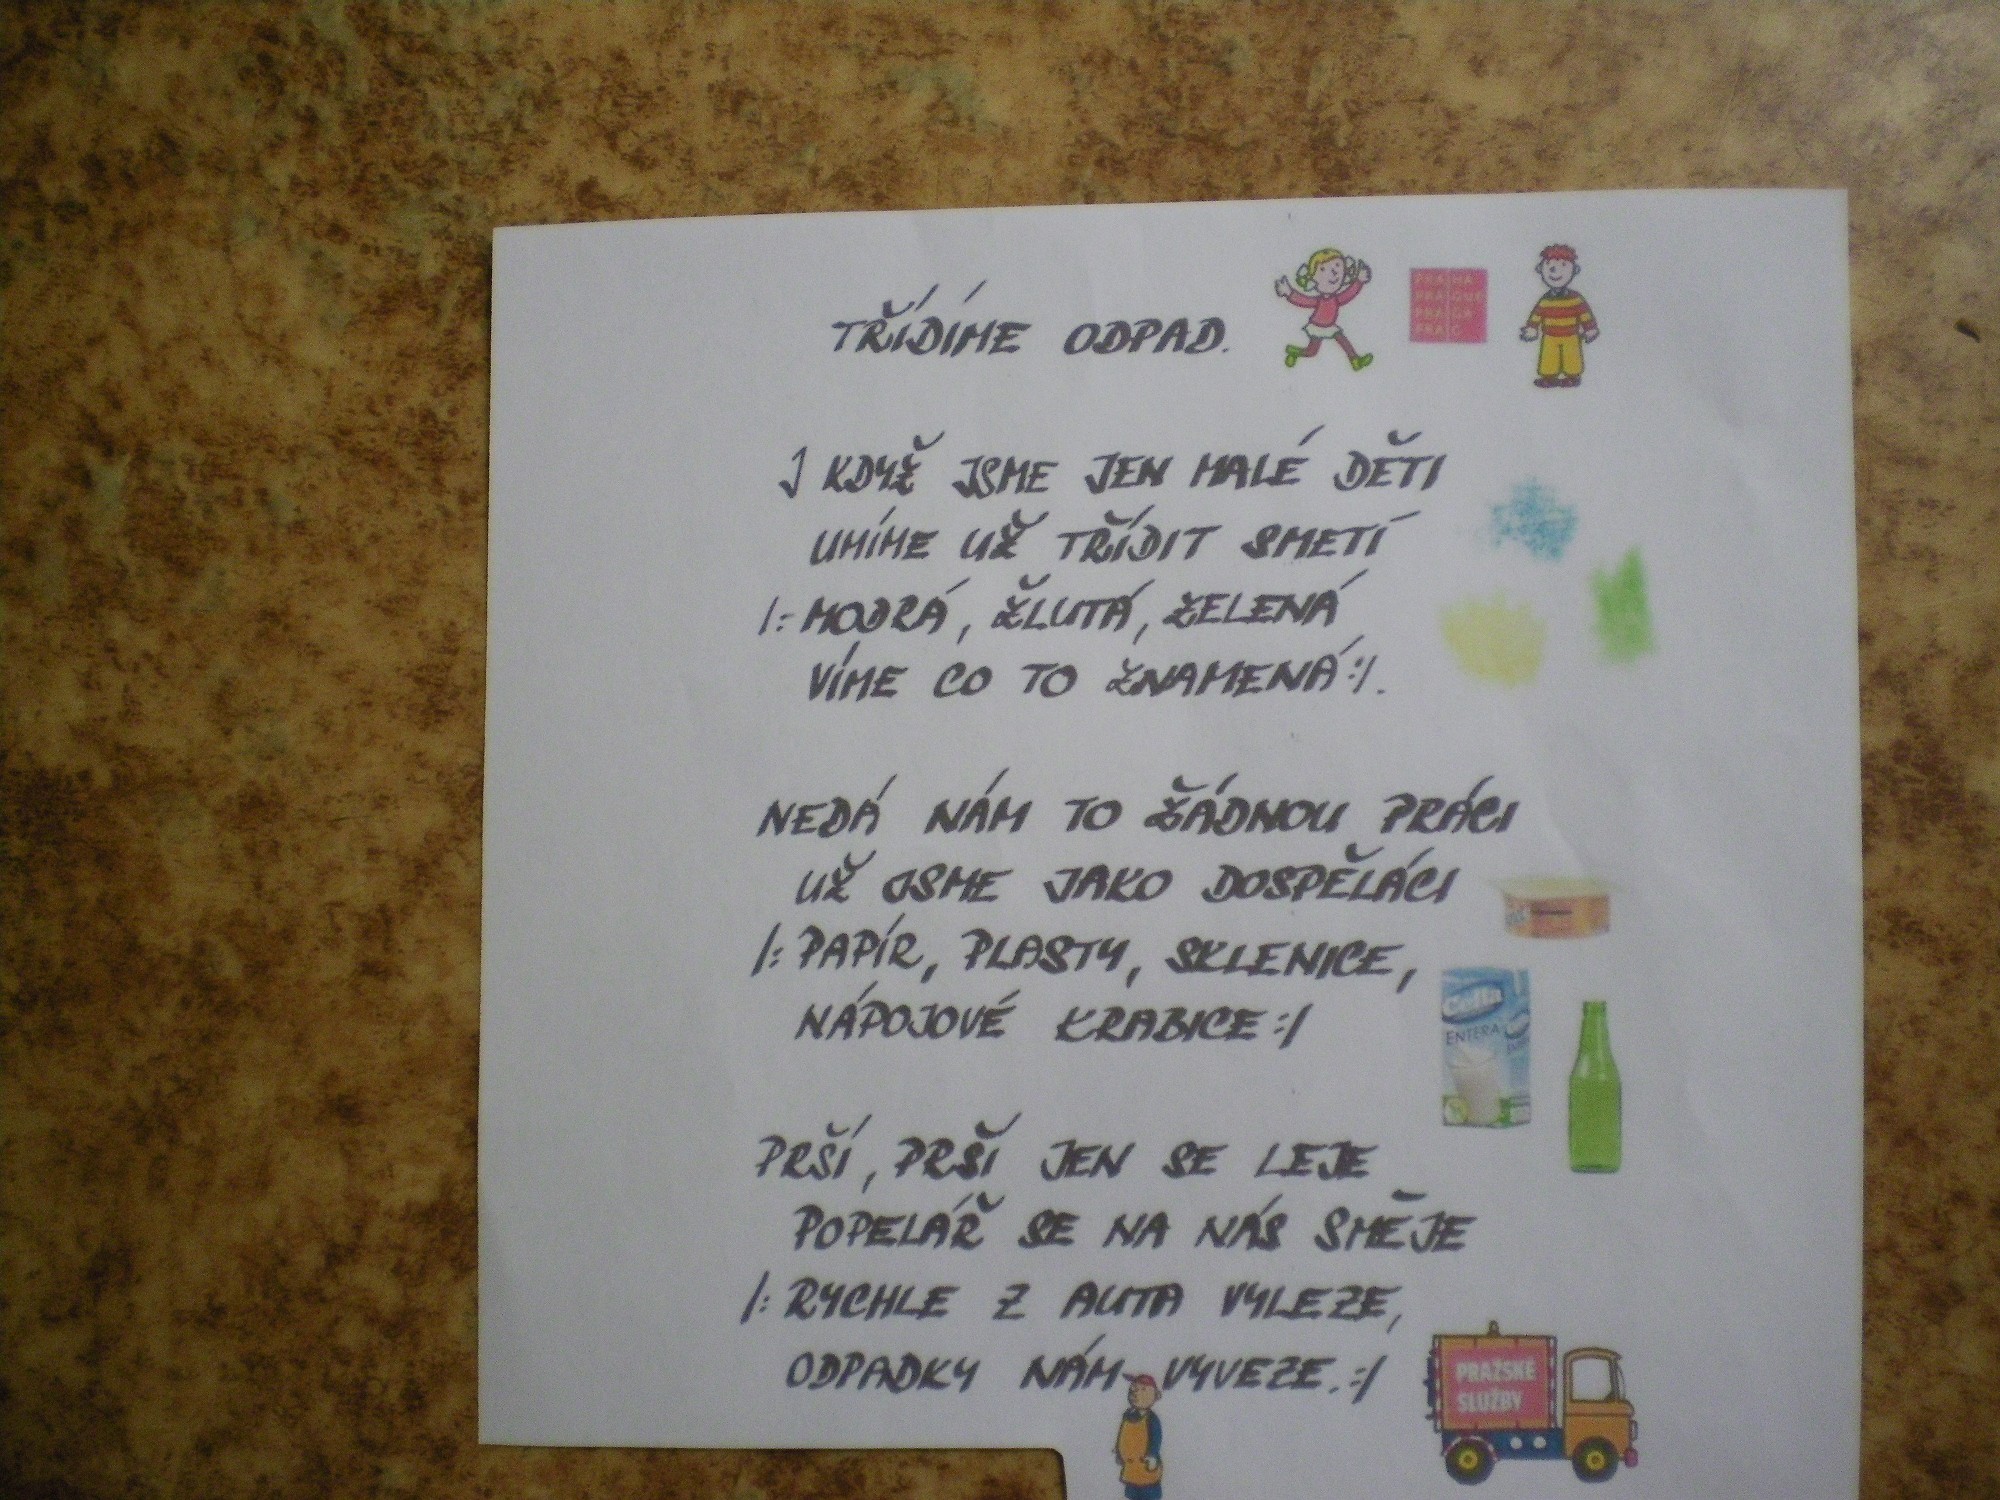 TŘÍDÍME ODPAD.
PRA HA
PRA GUE
PRA GA
PRA G
I KDYŽ JSME JEN MALÉ DĚTI
UMÍME UŽ TŘÍDIT SMETÍ
/: MODRÁ, ŽLUTÁ, ZELENÁ
VÍME CO TO ZNAMENÁ :/.
NEDÁ NÁM TO ŽÁDNOU PRÁCI
UŽ JSME JAKO DOSPĚLÁCI
/: PAPÍR, PLASTY, SKLENICE,
NÁPOJOVÉ KRABICE :/
Cella
ENTERA
PRŠÍ, PRŠÍ JEN SE LEJE
POPELÁŘ SE NA NÁS SMĚJE
/: RYCHLE Z AUTA VYLEZE,
ODPADKY NÁM VYVEZE. :/
PRAŽSKÉ
SLUŽBY